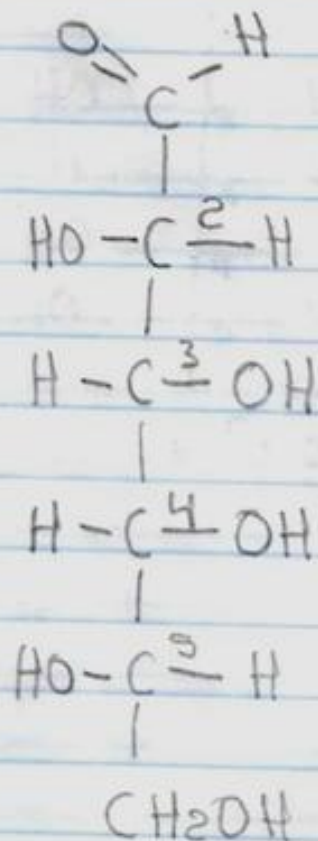 O H
C
HO-C 2 H
H-C 3 OH
H-C 4 OH
HO-C 5 H
CH2OH